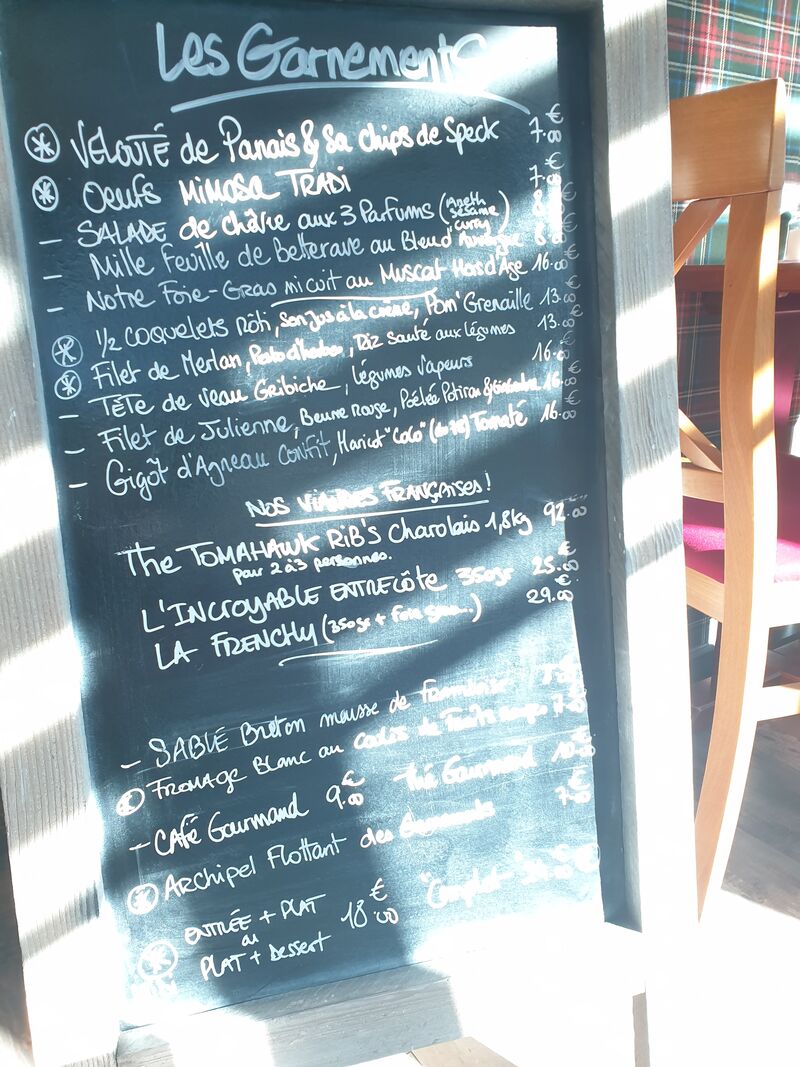 Les Garnements
* VELOUTÉ de Panais & Sa chips de Speck 7.00€
* Oeufs MiMOSA TRADI 7.00€
- SALADE de chèvre aux 3 Parfums (Aneth sésame curry) 8.00€
- Mille Feuille de Betterave au Bleu d'Auvergne 8.00€
- Notre Foie-Gras mi cuit au Muscat Hors d'Age 16.00€
* 1/2 COQUELETS Rôti, Son Jus à la crème, Pom' Grenaille 13.00€
* Filet de Merlan, Pesto d'herbes, Riz Sauté aux légumes 13.00€
- TÊTE de veau Gribiche, légumes vapeurs 16.00€
- Filet de Julienne, Beurre Rouge, Poêlée Potiron & 16.00€
- Gigôt d'Agneau confit, Haricot "Coco" Tomaté 16.00€
Nos ViANDES FRANÇAiSES!
The TOMAHAWK RiB'S Charolais 1,8kg 92.00€
pour 2 à 3 personnes.
L'INCROYABLE ENTRECÔTE 350gr 25.00€
LA FRENCHY (350gr + Foie gras..) 29.00€
- SABLÉ Breton mousse de Framboise
* FROMAGE Blanc au Coulis de Fruits rouges 7.00€
- CAFÉ Gourmand 9.00€ Thé Gourmand 10.00€
* ARCHIPEL Flottant des Garnements 7.00€
* ENTRÉE + PLAT
ou
PLAT + Dessert 18.00€ "Complet"